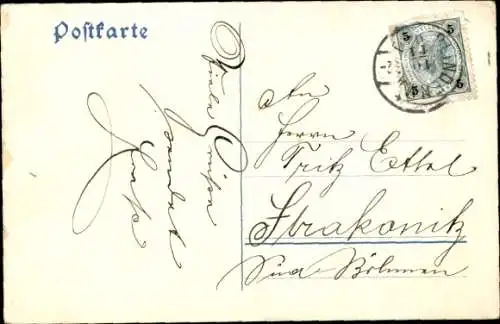 Postkarte
5 5
5 5
Viele Grüße
sendet
An
Herrn
Fritz Ettel
Strakonitz
Süd Böhmen